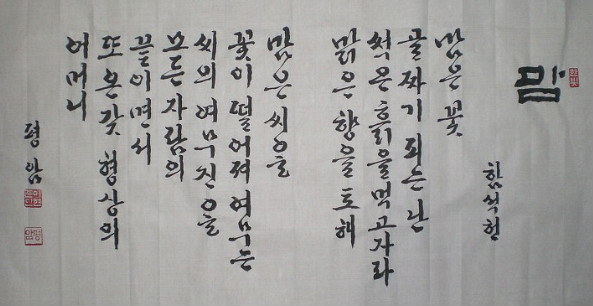 맘
함석헌
맘은 꽃
골짜기 피는 난
썩은 흙을 먹고 자라
맑은 향을 토해
맘은 씨알
꽃이 떨어져 여무는
씨의 여무진 알
모든 자람의
끝이면서
또 온갖 형상의
어머니
평암